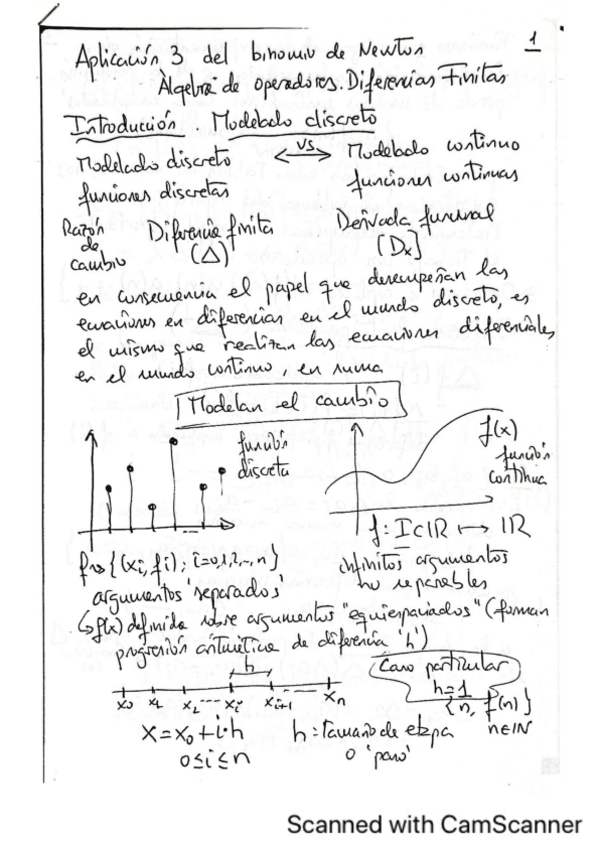 1
Aplicación 3 del binomio de Newton
Álgebra de operadores. Diferencias Finitas
Introducción. Modelado discreto
Modelado discreto <--VS--> Modelado continuo
funciones discretas funciones continuas
Razón de cambio Diferencia finita (Δ) Derivada funcional [Dx]
en consecuencia el papel que desempeñan las
ecuaciones en diferencias en el mundo discreto, es
el mismo que realizan las ecuaciones diferenciales
en el mundo continuo, en suma
Modelan el cambio
función discreta
f(x) función continua
f: I⊂IR ↦ IR
f → {(xi, fi); i=0,1,2,..,n}
argumentos 'separados'
infinitos argumentos
no separables
↳ f(x) definida sobre argumentos "equiespaciados" (forman
progresión aritmética de diferencia 'h')
h
x0 x1 x2 ---- xi xi+1 ------ xn
Caso particular
h=1
{n, f(n)}
n∈IN
X = x0 + i·h
0≤i≤n
h: tamaño de etapa
o 'paso'
Scanned with CamScanner